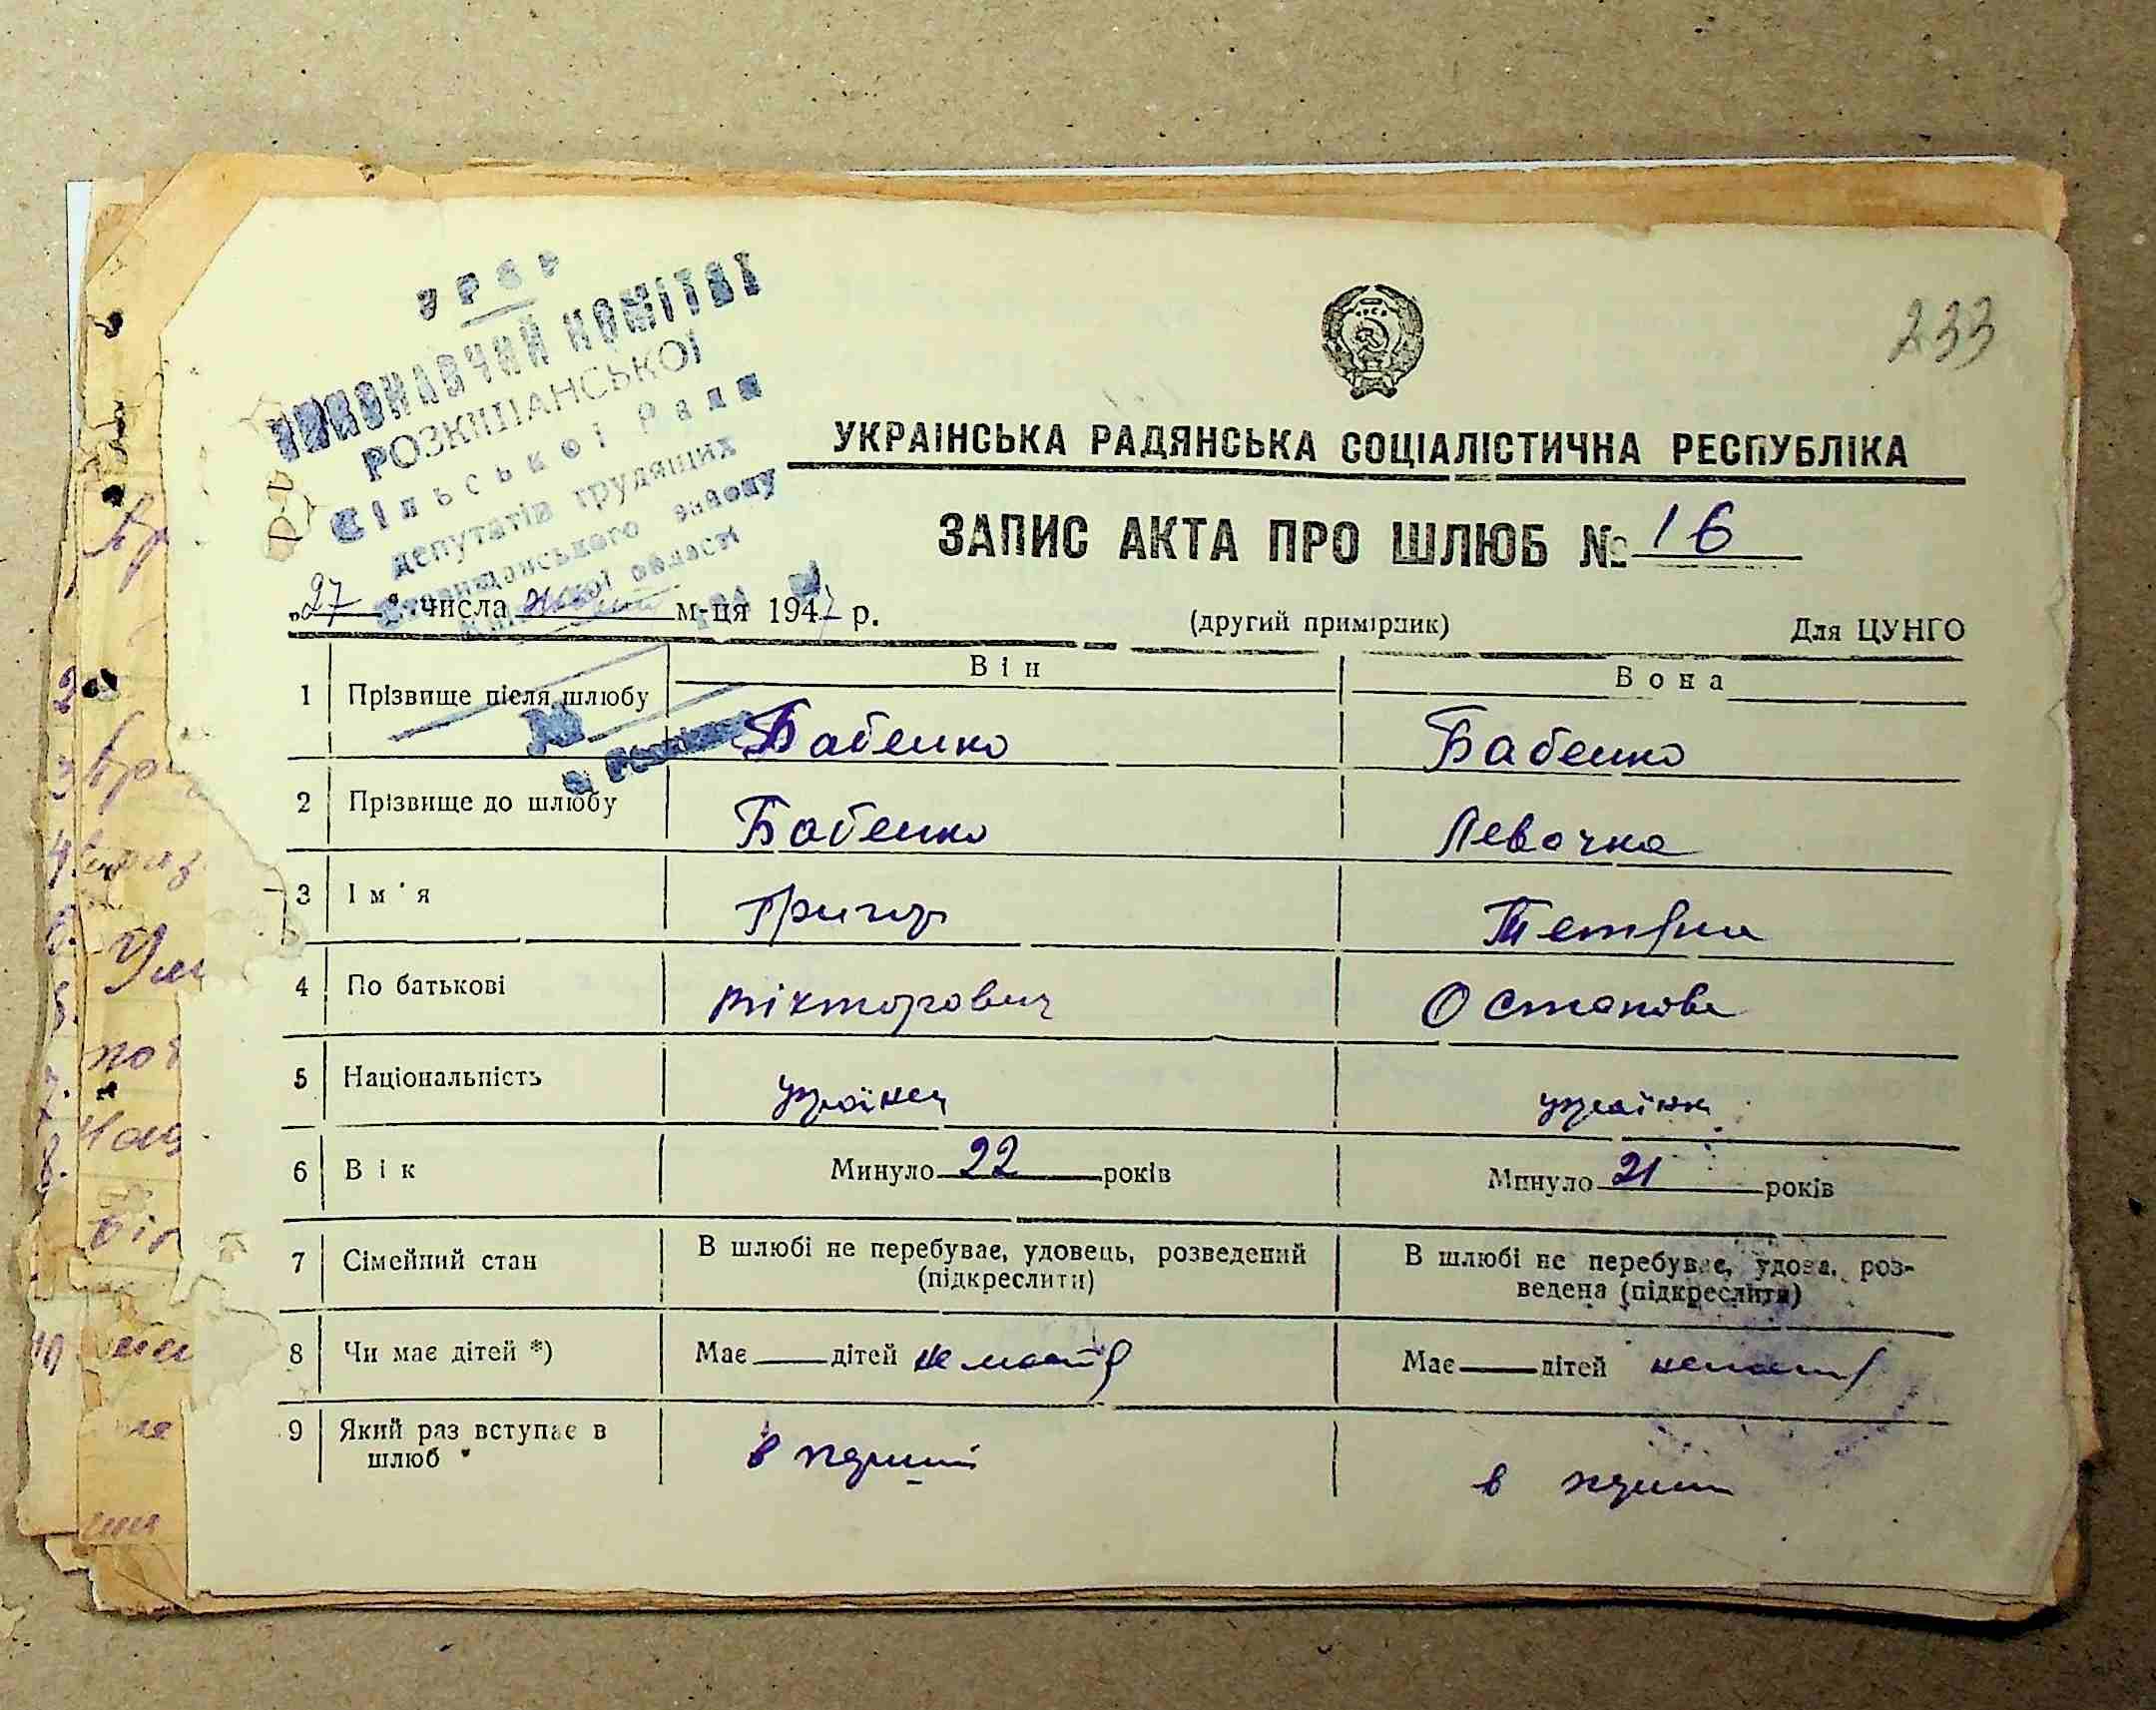 УРСР
ВИКОНАВЧИЙ КОМІТЕТ
РОЗКІШАНСЬКОЇ
Сільської Ради
депутатів трудящих
області
233
УКРАЇНСЬКА РАДЯНСЬКА СОЦІАЛІСТИЧНА РЕСПУБЛІКА
ЗАПИС АКТА ПРО ШЛЮБ № 16
„27“ числа м-ця 1947 р.
(другий примірник)
Для ЦУНГО
Він
Вона
1 Прізвище після шлюбу Бабенко Бабенко
2 Прізвище до шлюбу Бабенко Левочка
3 Ім'я Григор Тетяна
4 По батькові Вікторович Остапова
5 Національність українец українк
6 Вік Минуло 22 років Минуло 21 років
7 Сімейний стан В шлюбі не перебуває, удовець, розведений В шлюбі не перебуває, удова, роз-
(підкреслити) ведена (підкреслити)
8 Чи має дітей *) Має — дітей Має — дітей
9 Який раз вступає в
шлюб в перший в перши